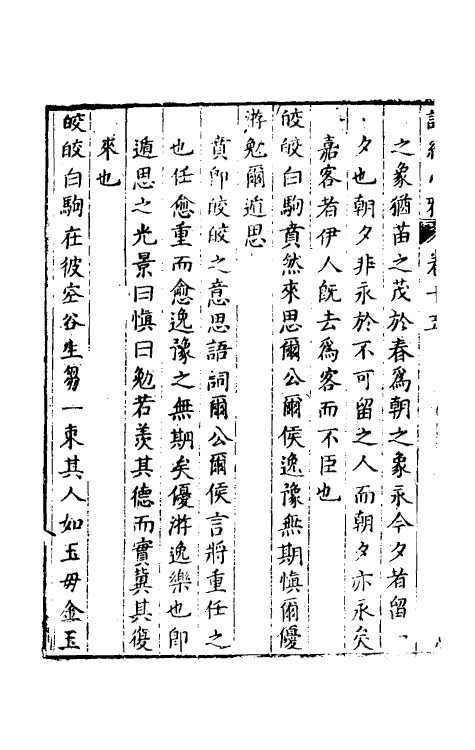 詩經小雅 卷十五
之象猶苗之茂於春爲朝之象永今夕者留一
夕也朝夕非永於不可留之人而朝夕亦永矣
嘉客者伊人旣去爲客而不臣也
皎皎白駒賁然來思爾公爾侯逸豫無期慎爾優
游勉爾遁思
賁卽皎皎之意思語詞爾公爾侯言將重任之
也任愈重而愈逸豫之無期矣優游逸樂也卽
遁思之光景曰慎曰勉若羨其德而實冀其復
來也
皎皎白駒在彼空谷生芻一束其人如玉毋金玉